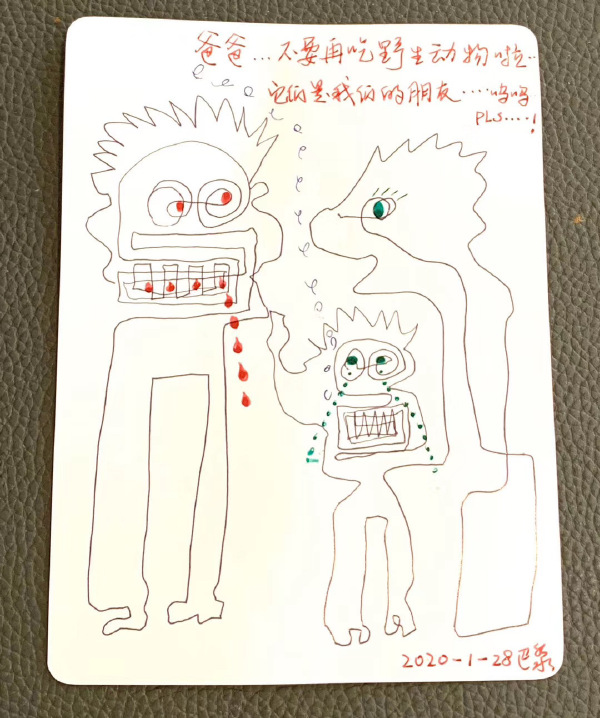 爸爸...不要再吃野生动物啦..
它们是我们的朋友....呜呜
PLS....!
2020-1-28